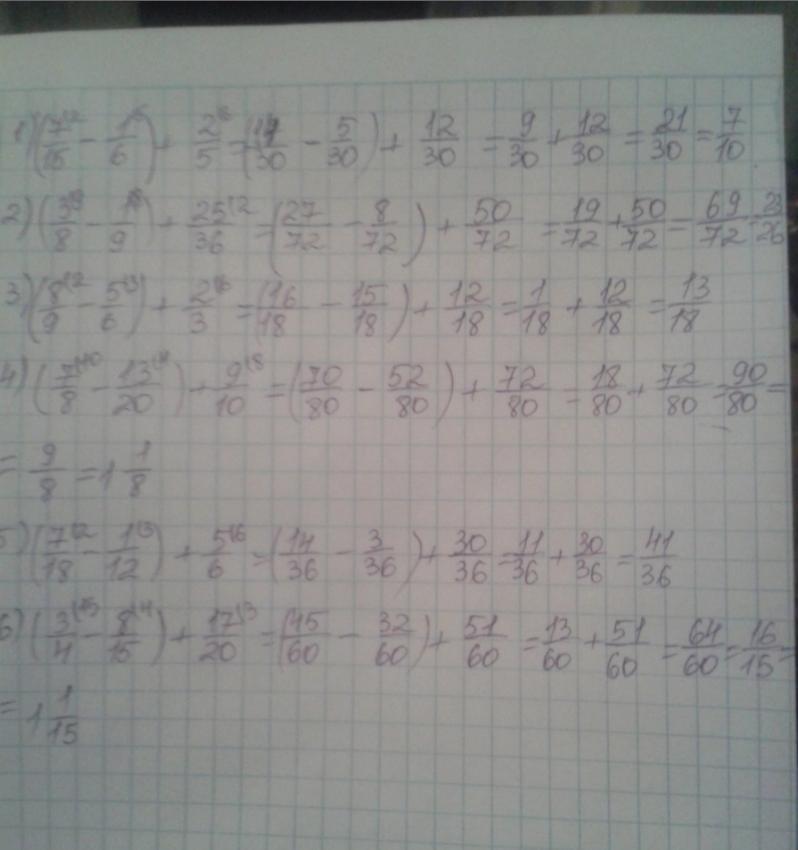 1) (7/15 - 1/6) + 2/5 = (14/30 - 5/30) + 12/30 = 9/30 + 12/30 = 21/30 = 7/10
2) (3/8 - 1/9) + 25/36 = (27/72 - 8/72) + 50/72 = 19/72 + 50/72 = 69/72 = 23/26
3) (8/9 - 5/6) + 2/3 = (16/18 - 15/18) + 12/18 = 1/18 + 12/18 = 13/18
4) (7/8 - 13/20) + 9/10 = (70/80 - 52/80) + 72/80 = 18/80 + 72/80 = 90/80 =
= 9/8 = 1 1/8
5) (7/18 - 1/12) + 5/6 = (14/36 - 3/36) + 30/36 = 11/36 + 30/36 = 41/36
6) (3/4 - 8/15) + 17/20 = (45/60 - 32/60) + 51/60 = 13/60 + 51/60 = 64/60 = 16/15 =
= 1 1/15